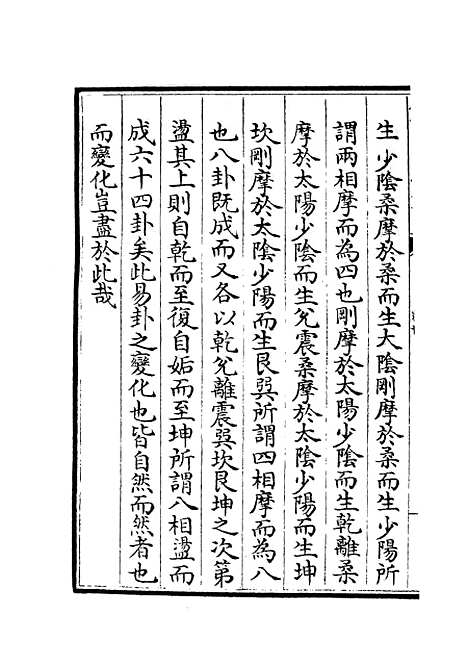 生少陰柔摩於柔而生大陰剛摩於柔而生少陽所
謂兩相摩而為四也剛摩於太陽少陰而生乾離柔
摩於太陽少陰而生兌震柔摩於太陰少陽而生坤
坎剛摩於太陰少陽而生艮巽所謂四相摩而為八
也八卦既成而又各以乾兌離震巽坎艮坤之次第
盪其上則自乾而至復自姤而至坤所謂八相盪而
成六十四卦矣此易卦之變化也皆自然而然者也
而變化豈盡於此哉